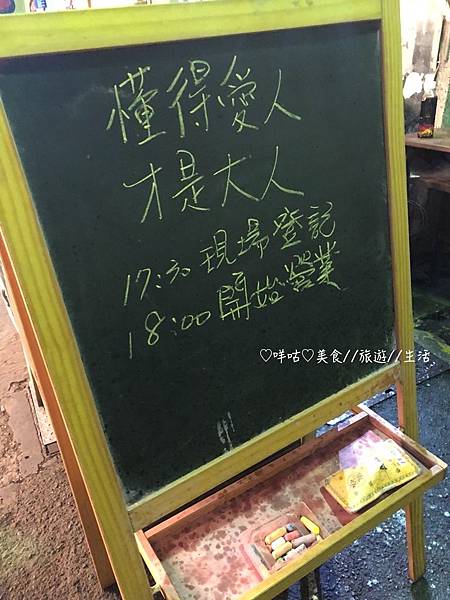 懂得愛人
才是大人
17:30 現場登記
18:00 開始營業
♡咩咕♡美食//旅遊//生活